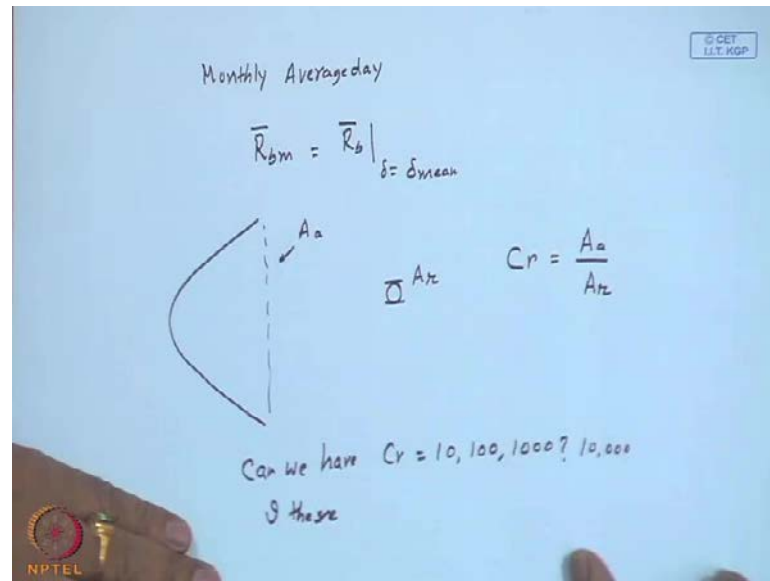 © CET
I.I.T. KGP
Monthly Average day
R̅bm = R̅b | δ = δmean
Aa
Ar
Cr = Aa / Ar
Can we have Cr = 10, 100, 1000? 10,000
there
NPTEL